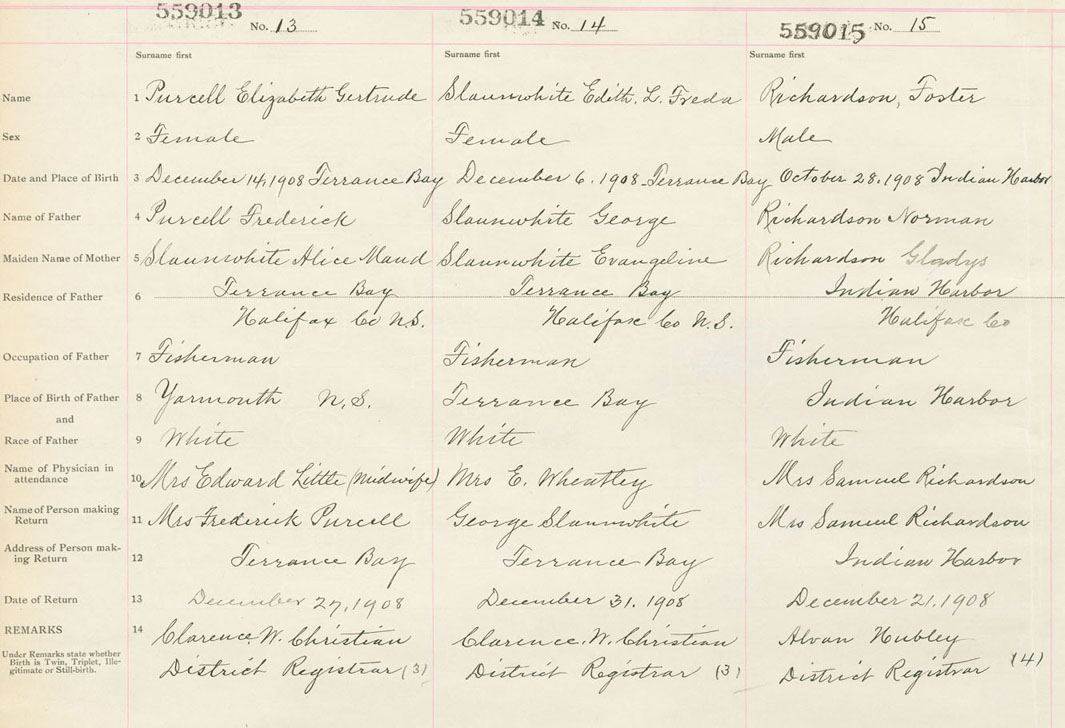 559013 No. 13 559014 No. 14 559015 No. 15
Surname first Surname first Surname first
Name 1 Purcell Elizabeth Gertrude Slaunwhite Edith. L. Freda Richardson, Foster
Sex 2 Female Female Male
Date and Place of Birth 3 December 14, 1908 Terrance Bay December 6. 1908 - Terrance Bay October 28. 1908 Indian Harbor
Name of Father 4 Purcell Frederick Slaunwhite George Richardson Norman
Maiden Name of Mother 5 Slaunwhite Alice Maud Slaunwhite Evangeline Richardson Gladys
Residence of Father 6 Terrance Bay Terrance Bay Indian Harbor
Halifax Co N.S. Halifax Co N.S. Halifax Co
Occupation of Father 7 Fisherman Fisherman Fisherman
Place of Birth of Father 8 Yarmouth N.S. Terrance Bay Indian Harbor
and
Race of Father 9 White White White
Name of Physician in
attendance 10 Mrs Edward Little (Midwife) Mrs E. Wheatley Mrs Samuel Richardson
Name of Person making
Return 11 Mrs Frederick Purcell George Slaunwhite Mrs Samuel Richardson
Address of Person mak-
ing Return 12 Terrance Bay Terrance Bay Indian Harbor
Date of Return 13 December 27, 1908 December 31. 1908 December 21. 1908
REMARKS 14 Clarence W. Christian Clarence. W. Christian Alvan Hubley
Under Remarks state whether
Birth is Twin, Triplet, Ille-
gitimate or Still-birth. District Registrar (3) District Registrar (3) District Registrar (4)